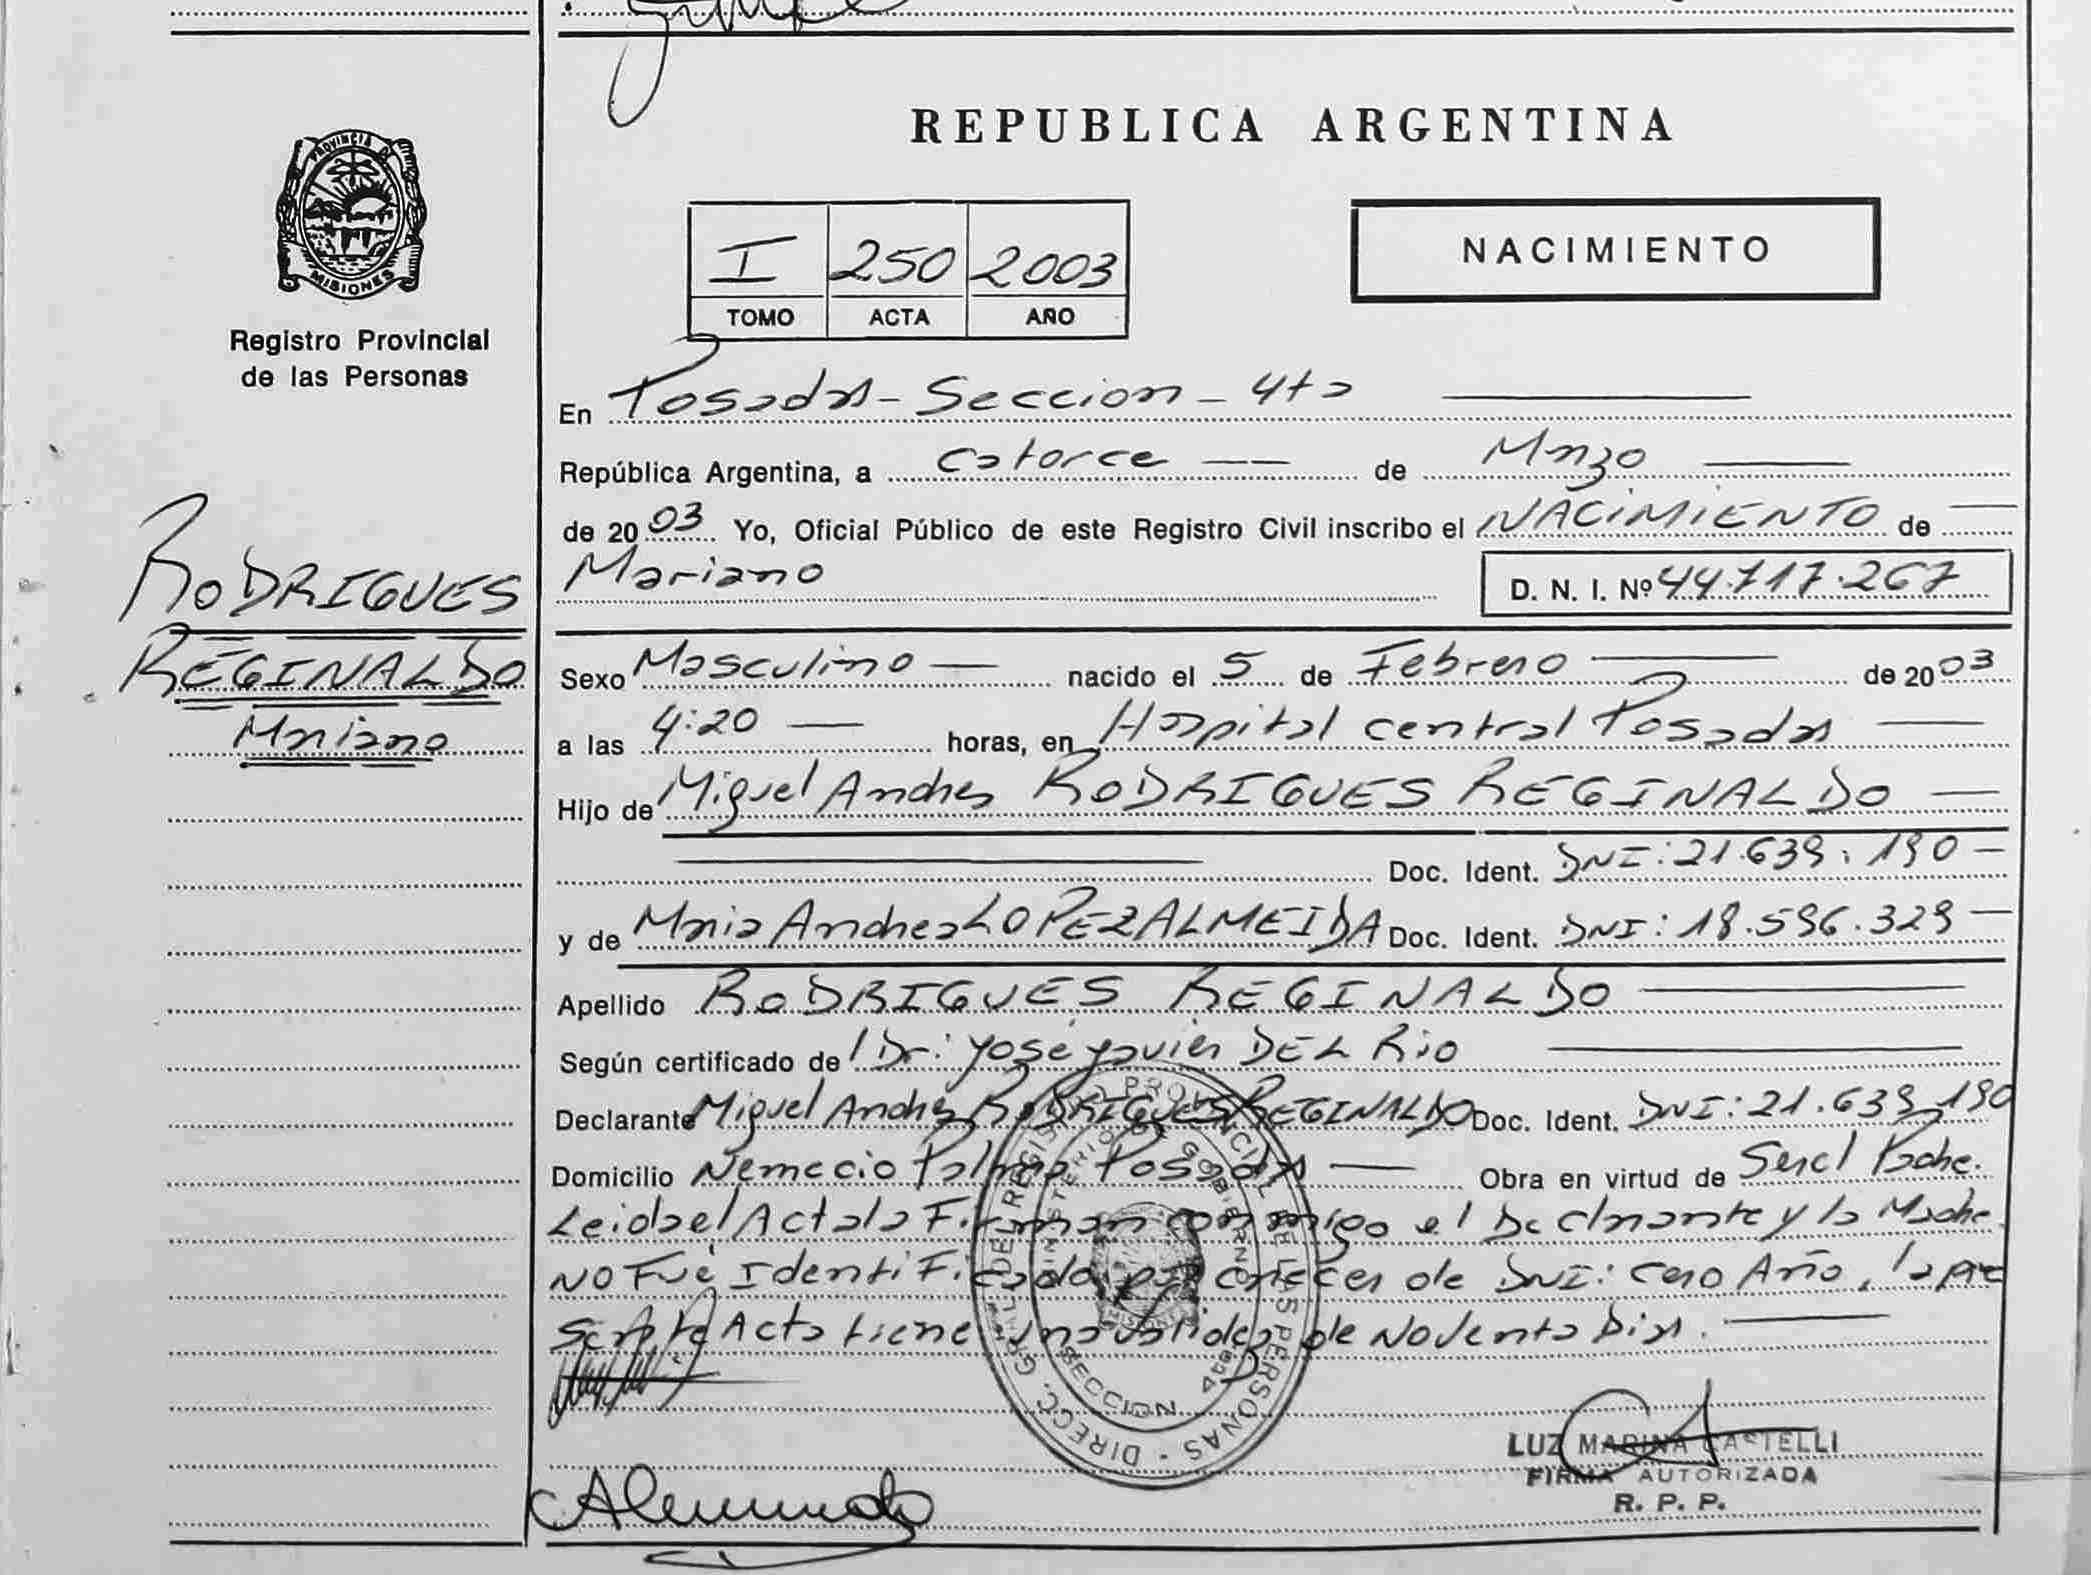 PROVINCIA DE
MISIONES
Registro Provincial
de las Personas
RODRIGUES
REGINALDO
Mariano
REPUBLICA ARGENTINA
I 250 2003
TOMO ACTA AÑO
NACIMIENTO
En Posadas - Seccion - 4ta
República Argentina, a catorce de Marzo
de 2003 Yo, Oficial Público de este Registro Civil inscribo el NACIMIENTO de
Mariano D. N. I. Nº 44.717.267
Sexo Masculino nacido el 5 de Febrero de 2003
a las 4:20 horas, en Hospital central Posadas
Hijo de Miguel Andres RODRIGUES REGINALDO
Doc. Ident. DNI: 21.639.190
y de Maria Andrea LOPEZ ALMEIDA Doc. Ident. DNI: 18.596.329
Apellido RODRIGUES REGINALDO
Según certificado de Dr: José Javier DEL Rio
Declarante Miguel Andres RODRIGUES REGINALDO Doc. Ident. DNI: 21.639.190
Domicilio Nemecio Palma Posadas Obra en virtud de Ser el Padre.
Leida el Acta la Firman conmigo el Declarante y la Madre.
NO Fué Identificada por carecer de DNI: cero Año, la pre
sente Acta tiene una validez de Noventa Dias.
DIRECC. GRAL. DEL REGISTRO PROVINCIAL DE LAS PERSONAS
MINISTERIO DE GOBIERNO
SECCION 4ta
LUZ MARINA CASTELLI
FIRMA AUTORIZADA
R. P. P.